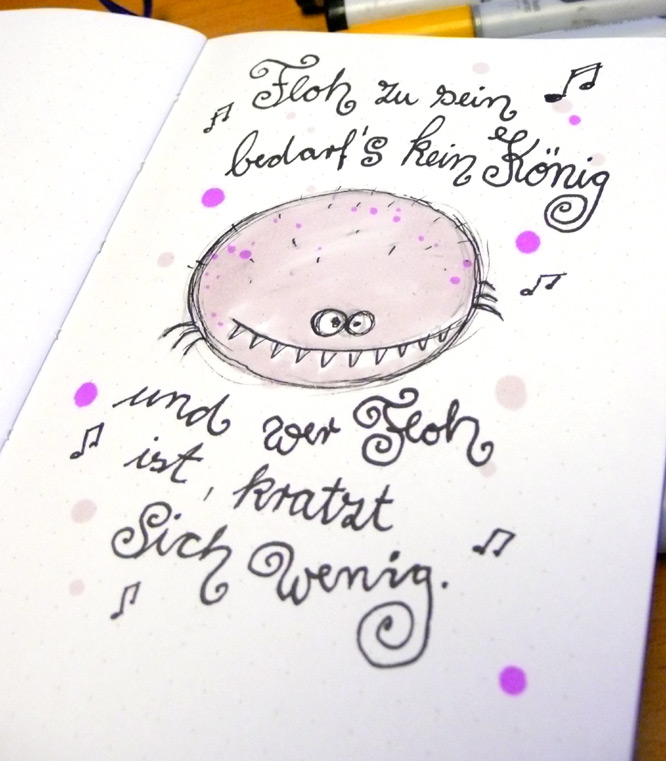 Floh zu sein
bedarf's kein König
und wer Floh
ist, kratzt
Sich Wenig.